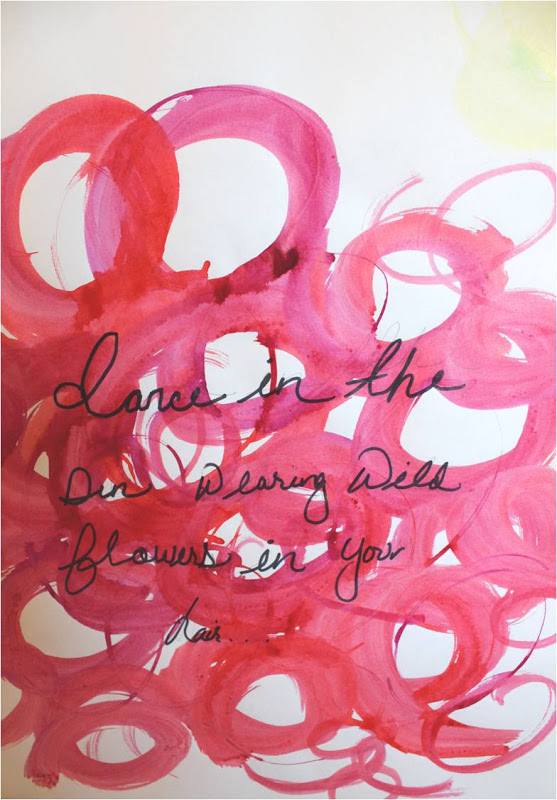 dance in the
Sun Wearing Wild
flowers in your
hair....